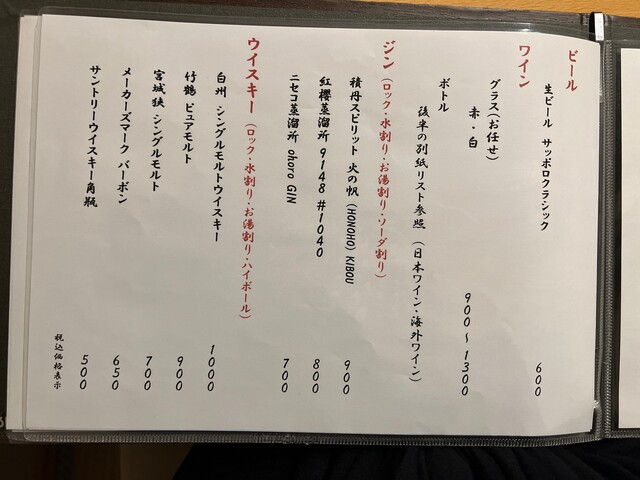 ビール
生ビール サッポロクラシック 600
ワイン
グラス(お任せ)
赤・白 900～1300
ボトル
後半の別紙リスト参照 (日本ワイン・海外ワイン)
ジン(ロック・水割り・お湯割り・ソーダ割り)
積丹スピリット 火の帆(HONOHO) KIBOU 900
紅櫻蒸溜所 9148 #1040 800
ニセコ蒸溜所 ohoro GIN 700
ウイスキー(ロック・水割り・お湯割り・ハイボール)
白州 シングルモルトウイスキー 1000
竹鶴 ピュアモルト 900
宮城狭 シングルモルト 700
メーカーズマーク バーボン 650
サントリーウイスキー角瓶 500
税込価格表示